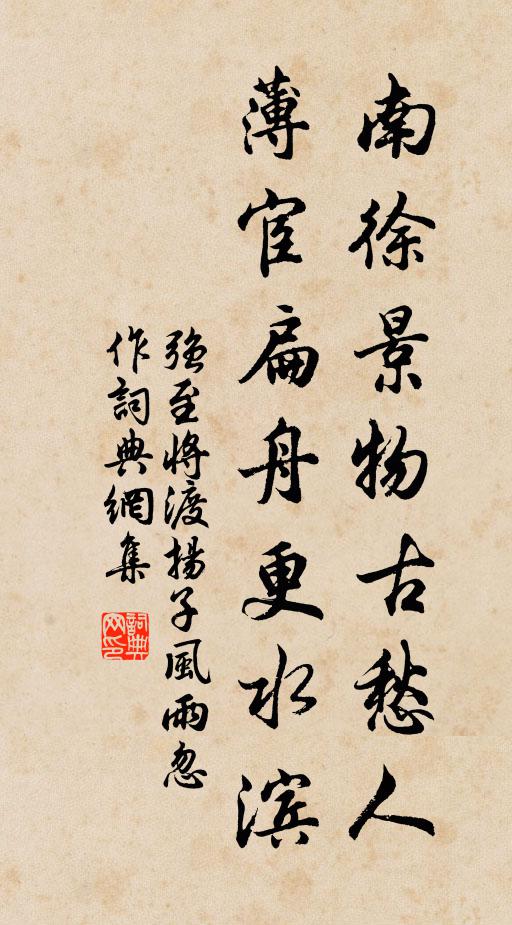 南徐景物古愁人
薄宦扁舟更水滨
強至將渡揚子風雨忽
作詞典網集
詞典
网印